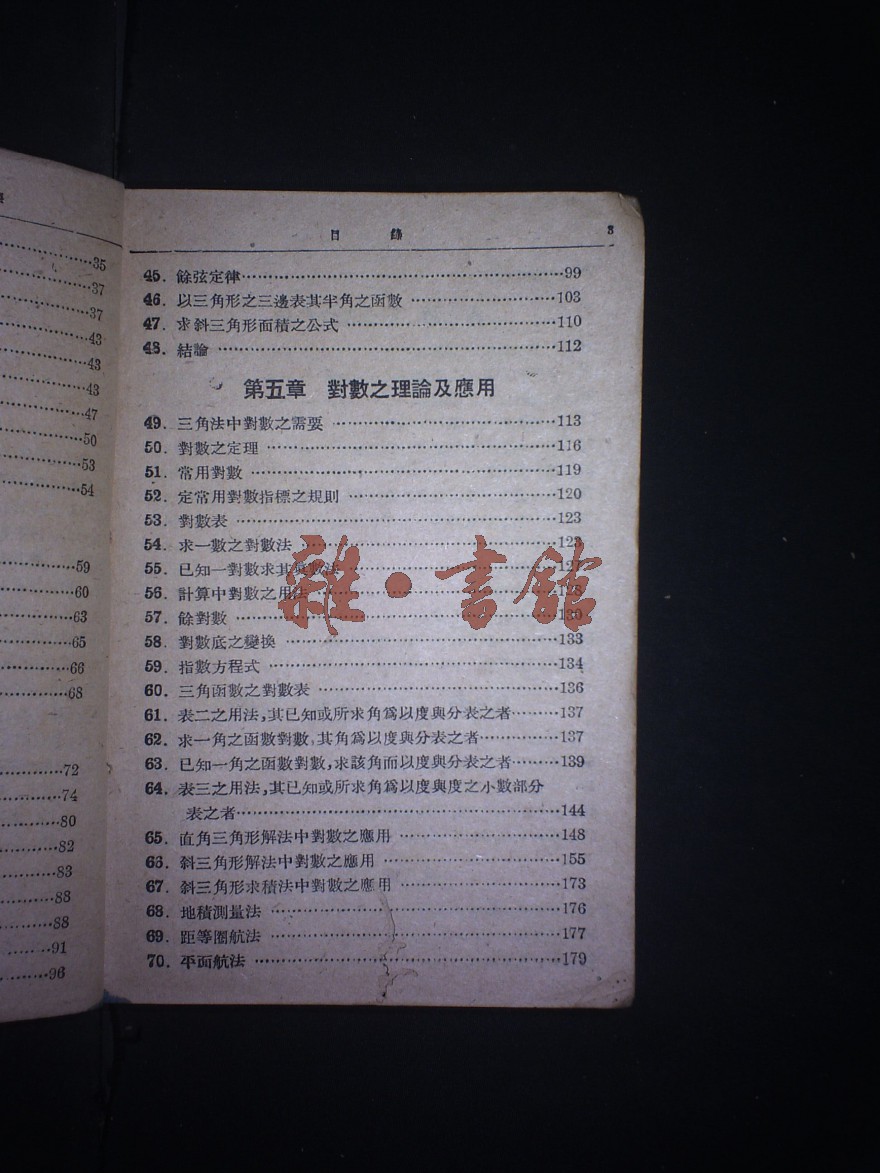 35
37
37
43
43
43
47
50
53
54
59
60
63
65
66
68
72
74
80
82
83
88
88
91
96
目 錄 3
45. 餘弦定律……99
46. 以三角形之三邊表其半角之函數……103
47. 求斜三角形面積之公式……110
48. 結論……112
第五章 對數之理論及應用
49. 三角法中對數之需要……113
50. 對數之定理……116
51. 常用對數……119
52. 定常用對數指標之規則……120
53. 對數表……123
54. 求一數之對數法……123
55. 已知一對數求其真數法……127
56. 計算中對數之用法……128
57. 餘對數……130
58. 對數底之變換……133
59. 指數方程式……134
60. 三角函數之對數表……136
61. 表二之用法,其已知或所求角爲以度與分表之者……137
62. 求一角之函數對數,其角爲以度與分表之者……137
63. 已知一角之函數對數,求該角而以度與分表之者……139
64. 表三之用法,其已知或所求角爲以度與度之小數部分
表之者……144
65. 直角三角形解法中對數之應用……148
66. 斜三角形解法中對數之應用……155
67. 斜三角形求積法中對數之應用……173
68. 地積測量法……176
69. 距等圈航法……177
70. 平面航法……179
雜·書館